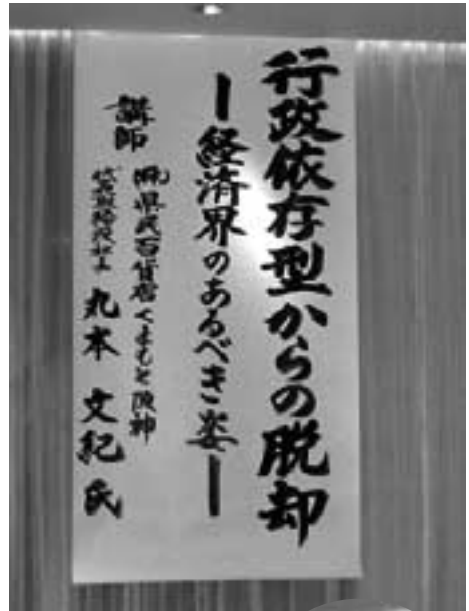 行政依存型からの脱却
ー経済界のあるべき姿ー
講師
㈱県民百貨店くまもと阪神
代表取締役社長 丸本 文紀 氏